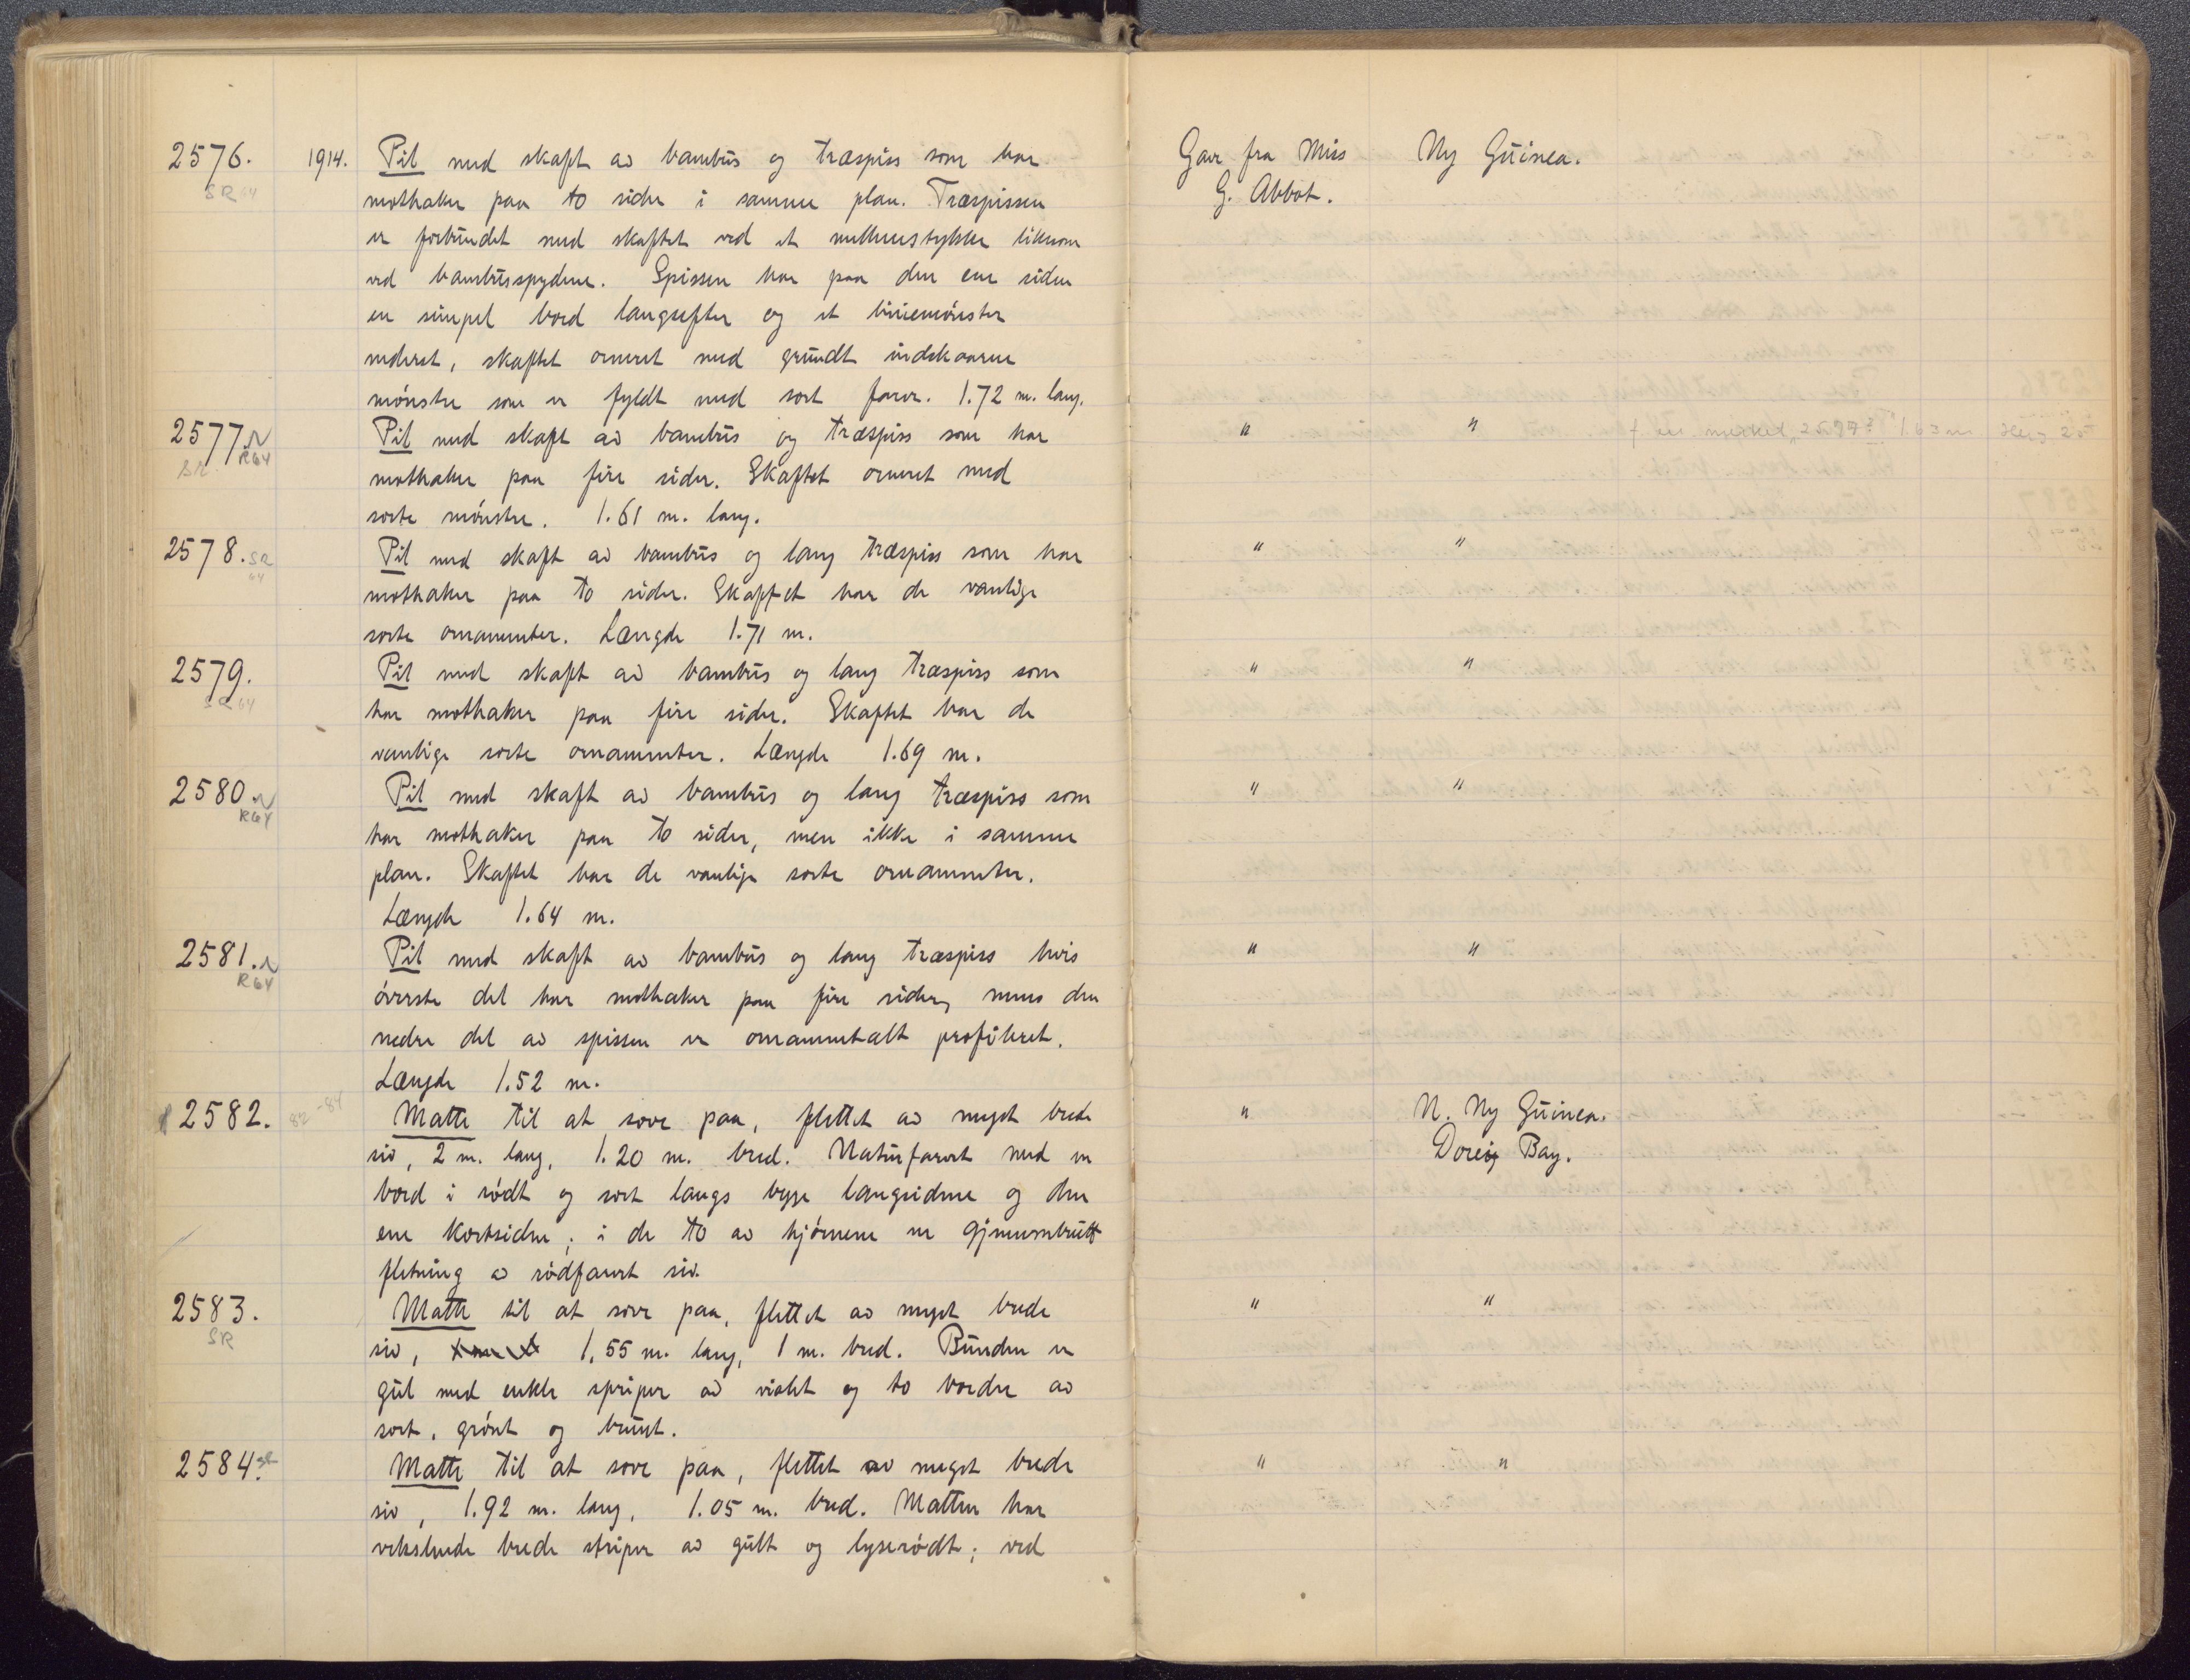 2576. 1914. Pil med skaft av bambus og træspiss som har Gave fra Miss Ny Guinea.
SR 64 mothaker paa to sider i samme plan. Træspissen G. Abbot.
er forbundet med skaftet ved et mellemstykke liksom
ved bambusspydene. Spissen har paa den ene siden
en simpel bord langsefter og et liniemønster
nederst, skaftet orneret med grundt indskaarne
mønstre som er fyldt med sort farve. 1.72 m. lang.
2577. Pil med skaft av bambus og træspiss som har " " en merket 2577? 1.63 m
SR R64 mothaker paa fire sider. Skaftet orneret med
sorte mønstre. 1.61 m. lang.
2578. SR 64 Pil med skaft av bambus og lang træspiss som har " "
mothaker paa to sider. Skaftet har de vanlige
sorte ornamenter. Længde 1.71 m.
2579. Pil med skaft av bambus og lang træspiss som " "
SR 64 har mothaker paa fire sider. Skaftet har de
vanlige sorte ornamenter. Længde 1.69 m.
2580. Pil med skaft av bambus og lang træspiss som " "
R64 har mothaker paa to sider, men ikke i samme
plan. Skaftet har de vanlige sorte ornamenter.
Længde 1.64 m.
2581. Pil med skaft av bambus og lang træspiss hvis " "
R64 øverste del har mothaker paa fire sider, mens den
nedre del av spissen er ornamentalt profileret.
Længde 1.52 m.
2582. 82-84 Matte til at sove paa, flettet av meget brede " N. Ny Guinea.
siv, 2 m. lang, 1.20 m. bred. Naturfarvet med en Dorey Bay.
bord i rødt og sort langs begge langsidene og den
ene kortsiden; i de to av hjørnene er gjennembrutt
fletning av rødfarvet siv.
2583. Matte til at sove paa, flettet av meget brede " "
SR siv, 1.55 m. lang, 1 m. bred. Bunden er
gul med enkle spriper av violet og to border av
sort, grønt og brunt.
2584. SR Matte til at sove paa, flettet av meget brede " "
siv, 1.92 m. lang, 1.05 m. bred. Matten har
vekslende brede striper av gult og lyserødt; ved